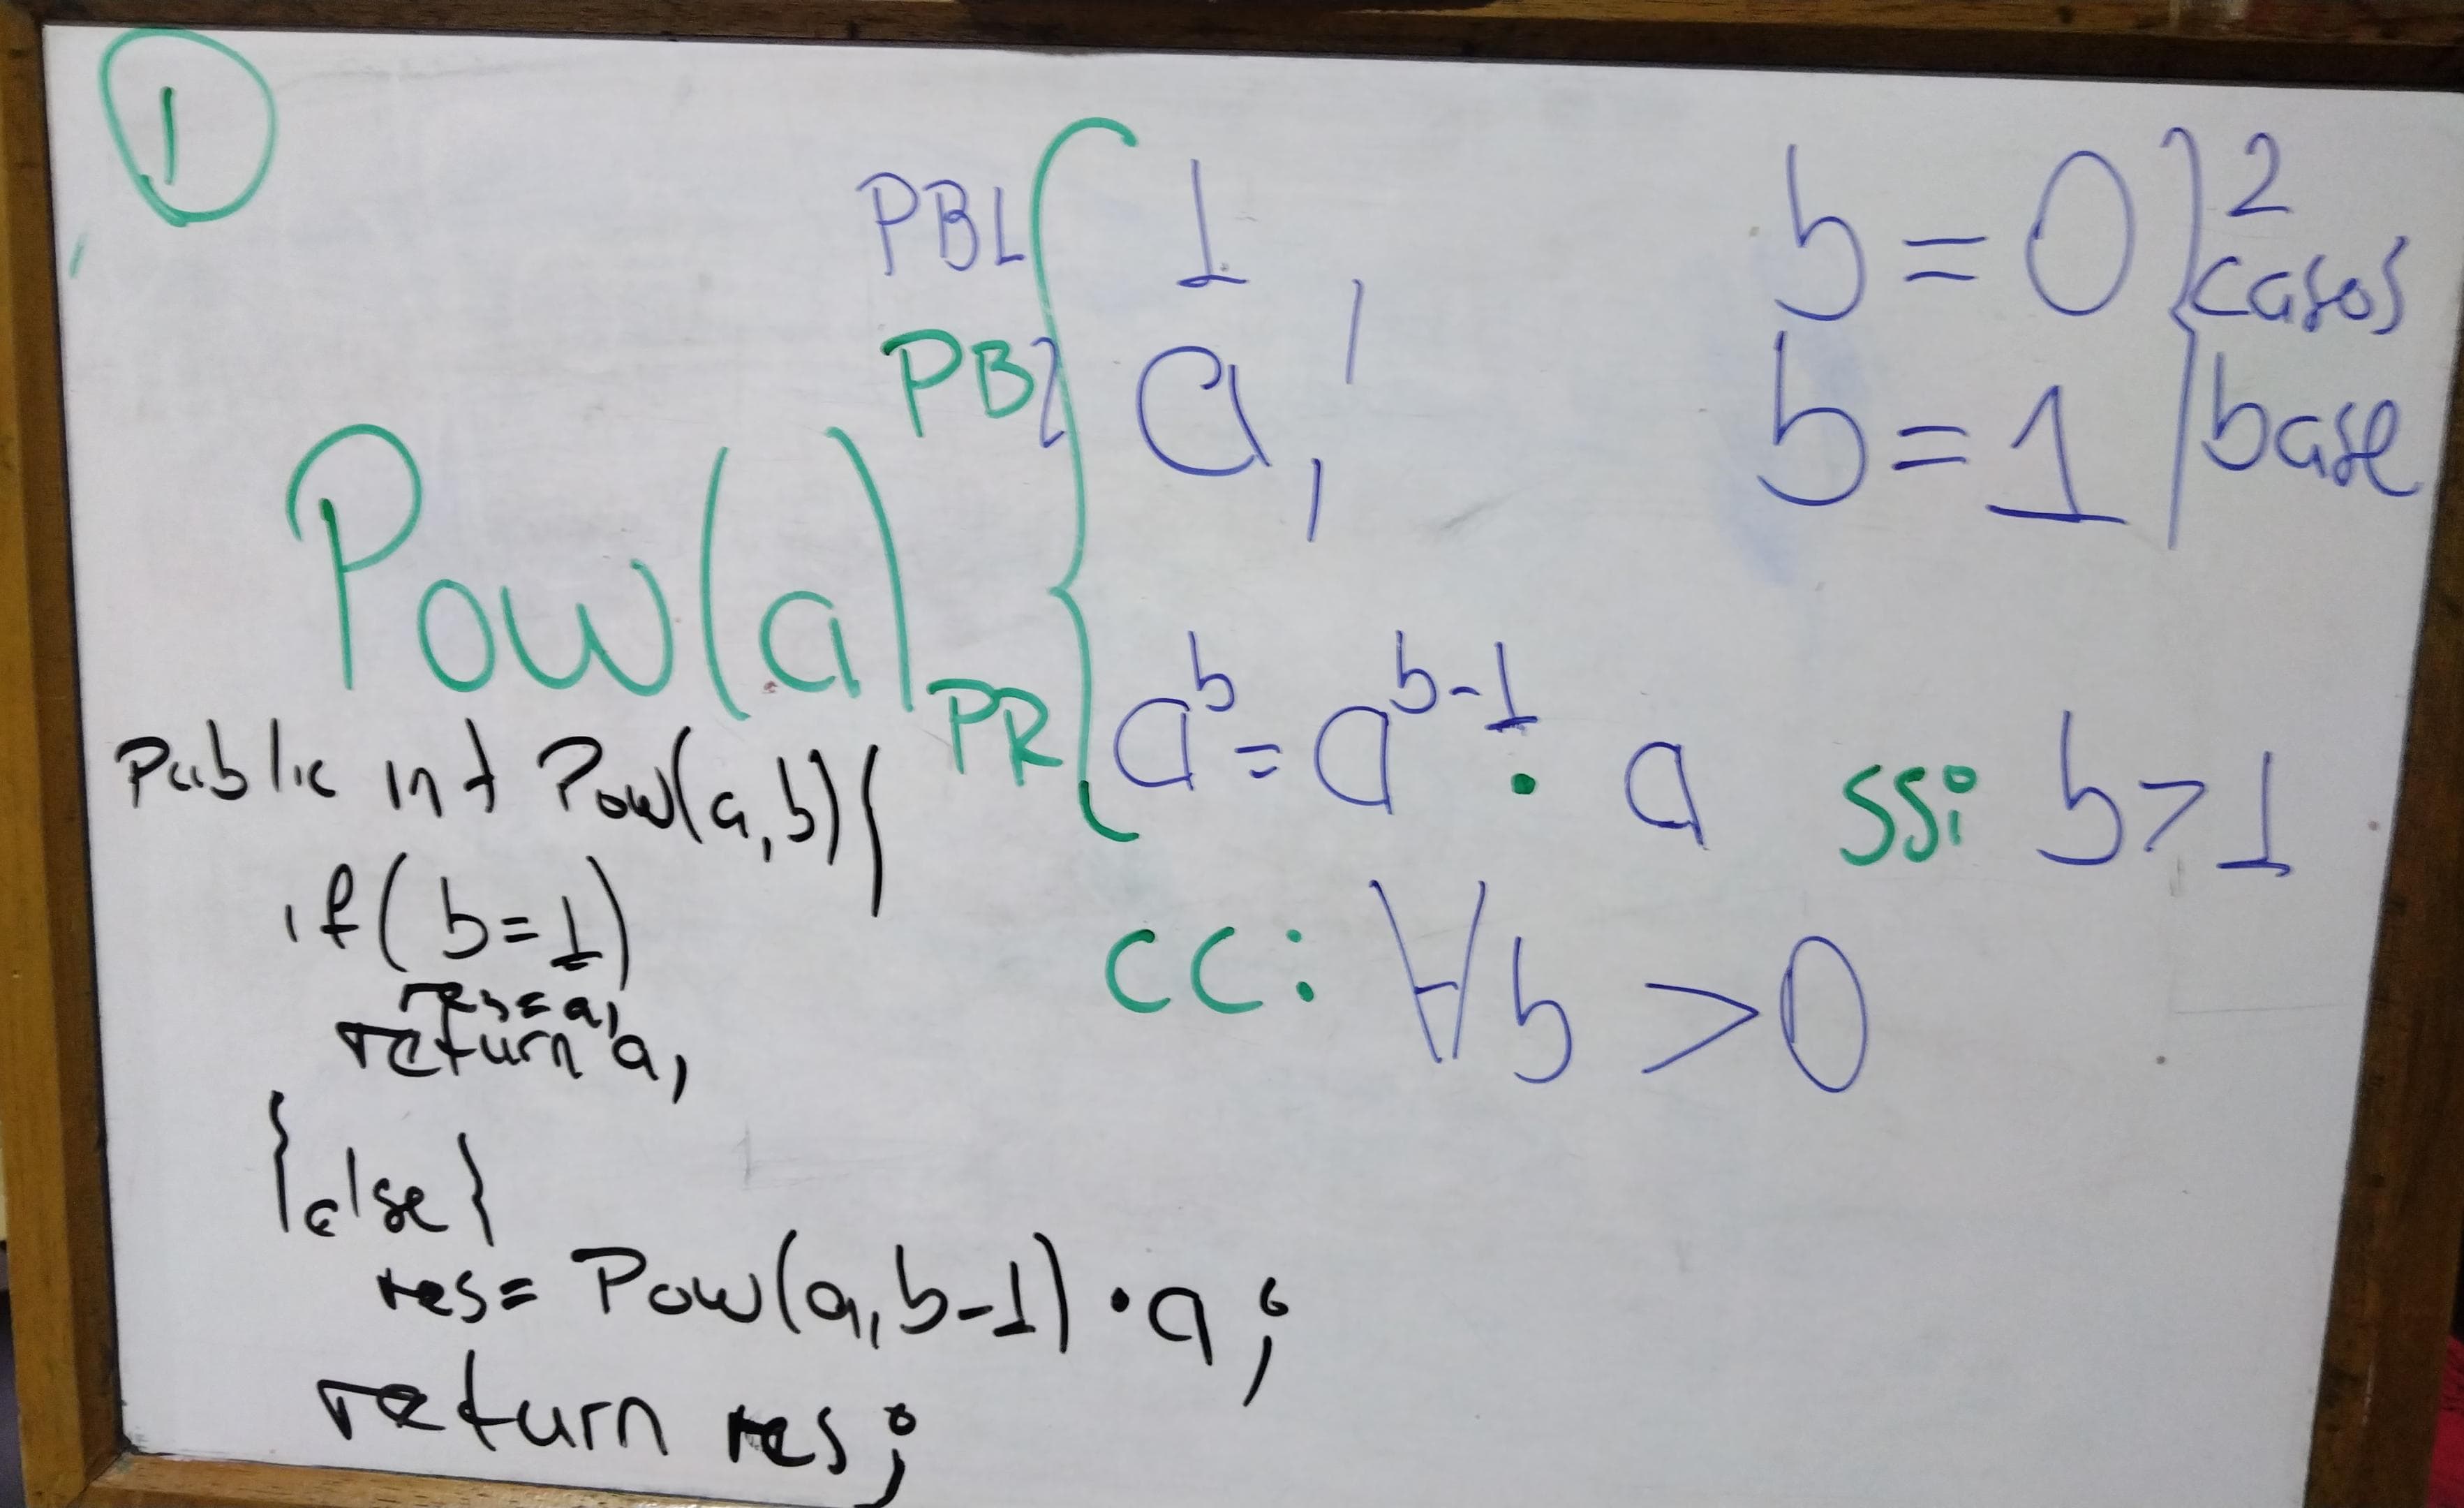 1
PB1 1, b=0
PB2 a, b=1
2
casos
base
Pow(a)
PR a^b = a^b-1 · a ssi b>1
CC: ∀b >0
Public int Pow(a,b){
if(b=1)
res=a;
return a;
}else{
res= Pow(a,b-1)·a;
return res;